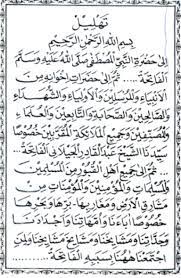 تَهْلِيْل
بِسْمِ اللهِ الرَّحْمٰنِ الرَّحِيْمِ
اِلٰى حَضْرَةِ النَّبِيِّ الْمُصْطَفٰى صَلَّى اللهُ عَلَيْهِ وَسَلَّمَ
الْفَاتِحَةُ ... ثُمَّ اِلٰى حَضَرَاتِ اِخْوَانِهِ مِنَ
الْاَنْبِيَاءِ وَالْمُرْسَلِيْنَ وَالْاَوْلِيَاءِ وَالشُّهَدَاءِ
وَالصَّالِحِيْنَ وَالصَّحَابَةِ وَالتَّابِعِيْنَ وَالْعُلَمَاءِ
وَالْمُصَنِّفِيْنَ وَجَمِيْعِ الْمَلَائِكَةِ الْمُقَرَّبِيْنَ خُصُوْصًا
سَيِّدِنَا الشَّيْخِ عَبْدِ الْقَادِرِ الْجَيْلَانِي الْفَاتِحَةُ ...
ثُمَّ اِلٰى جَمِيْعِ اَهْلِ الْقُبُوْرِ مِنَ الْمُسْلِمِيْنَ
وَالْمُسْلِمَاتِ وَالْمُؤْمِنِيْنَ وَالْمُؤْمِنَاتِ مِنْ
مَشَارِقِ الْاَرْضِ وَمَغَارِبِهَا بَرِّهَا وَبَحْرِهَا
خُصُوْصًا اٰبَاءَنَا وَاُمَّهَاتِنَا وَاَجْدَادَنَا
وَجَدَّاتِنَا وَمَشَايِخَنَا وَمَشَايِخَ مَشَايِخِنَا وَلِمَنِ
اجْتَمَعْنَا هٰهُنَا بِسَبَبِهِ الْفَاتِحَةُ ...